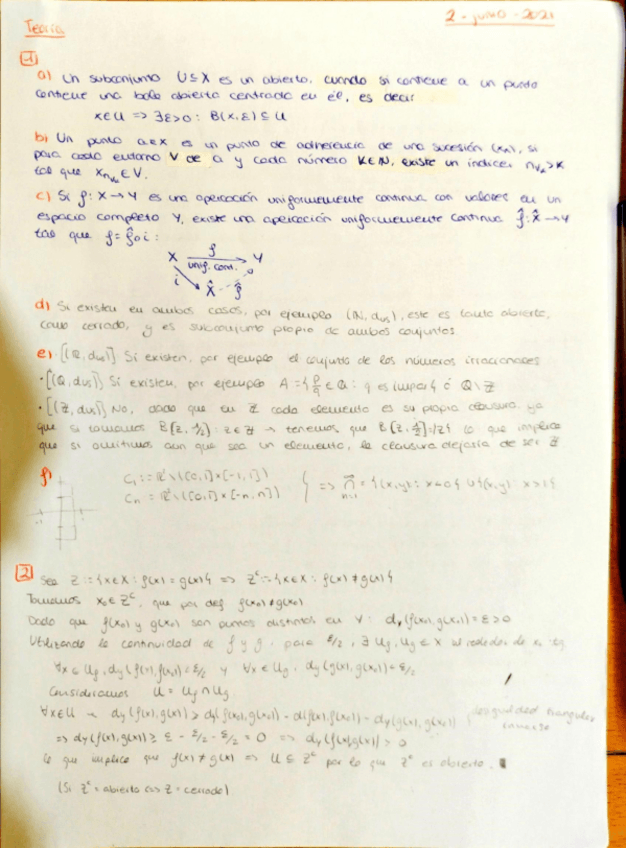 Teoría
2 - junio - 2021
1
a) Un subconjunto U⊆X es un abierto, cuando si contiene a un punto
contiene una bola abierta centrada en él, es decir
x∈U => ∃ε>0 : B(x,ε)⊆U
b) Un punto a∈X es un punto de adherencia de una sucesión (xn), si
para cada entorno V de a y cada número K∈N, existe un índice n_{V,k}>K
tal que x_{n_{V,k}}∈V.
c) Si f: X→Y es una aplicación uniformemente continua con valores en un
espacio completo Y, existe una aplicación uniformemente continua f̂: X̂→Y
tal que f = f̂∘i :
X f Y
unif. cont.
i X̂ f̂
d) Si existen en ambos casos, por ejemplo (N, d_us), este es tanto abierto,
como cerrado, y es subconjunto propio de ambos conjuntos.
e) · [(R, d_us)] Si existen, por ejemplo el conjunto de los números irracionales
· [(Q, d_us)] Si existen, por ejemplo A = {p/q ∈ Q : q es impar} ó Q\Z
· [(Z, d_us)] No, dado que en Z cada elemento es su propia clausura, ya
que si tomamos B(z, 1/2) : z∈Z → tenemos que B(z, 1/2)={z} lo que implica
que si omitimos aun que sea un elemento, la clausura dejaría de ser Z
f) C1 := R²\([0,1]×[-1,1])
Cn = R²\([0,1]×[-n,n])
=> ∩ n=1 = {(x,y): x<0} ∪ {(x,y): x>1}
2 Sea Z := {x∈X : f(x) = g(x)} => Z^c := {x∈X : f(x) ≠ g(x)}
Tomamos x0∈Z^c, que por def f(x0)≠g(x0)
Dado que f(x0) y g(x0) son puntos distintos en Y : dy(f(x0),g(x0)) = ε>0
Utilizando la continuidad de f y g, para ε/2, ∃ Uf, Ug ∈ X alrededor de x0 tq
∀x∈Uf, dy(f(x),f(x0))<ε/2 y ∀x∈Ug, dy(g(x),g(x0))<ε/2
Consideramos U = Uf ∩ Ug
∀x∈U → dy(f(x),g(x)) > dy(f(x0),g(x0)) - d(f(x),f(x0)) - dy(g(x),g(x0)) desigualdad triangular
inversa
=> dy(f(x),g(x)) ≥ ε - ε/2 - ε/2 = 0 => dy(f(x),g(x)) > 0
lo que implica que f(x)≠g(x) => U ⊆ Z^c por lo que Z^c es abierto.
(Si Z^c = abierto <=> Z = cerrado)